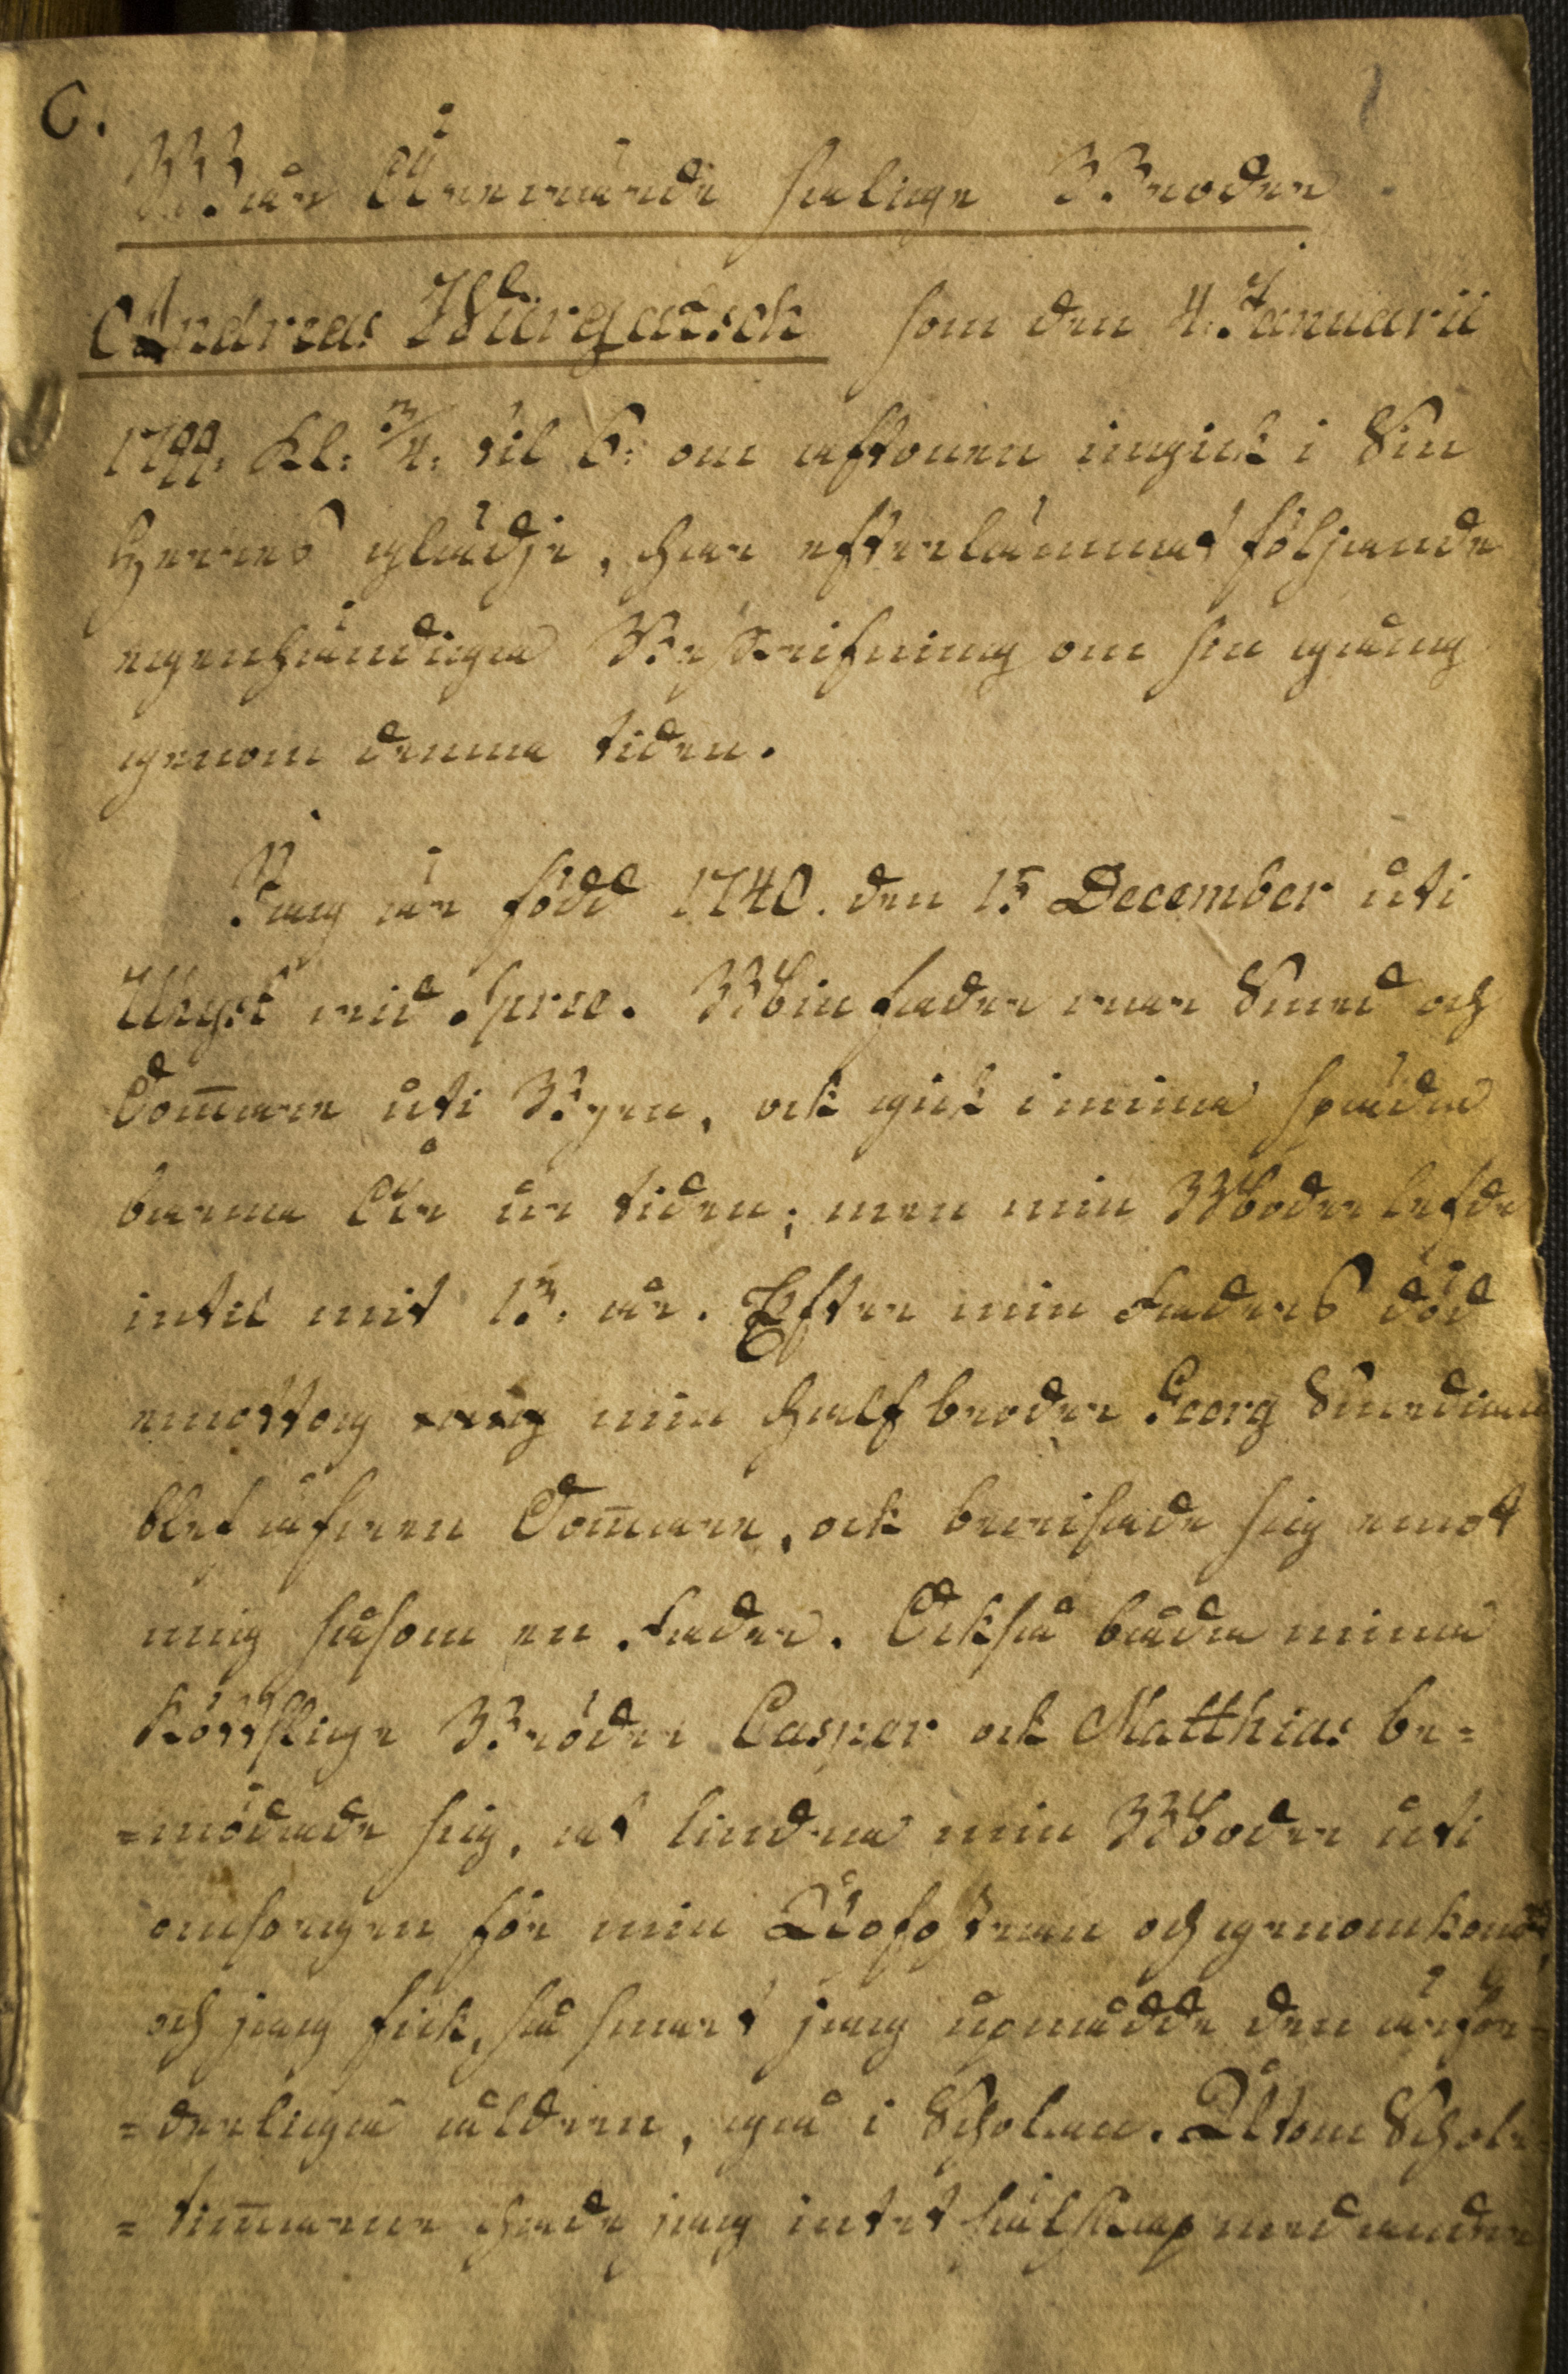 C.
Wår Ärevärde salige Broder
Andreas Würgatsch som den 4. Januarii
1799. Kl: 3/4. til 6: om aftonen ingick i Sin
Herres glädje, har efterlämnat följande
egenhändiga Beskrifning om sin gång
genom denna tiden.
Jag är född 1740. den 15 December uti
Uhyst vid Spree. Min fader var Smed och
Domare uti Byen, ock gick i mina späda
barna År ur tiden; men min Moder lefde
intil mit 13. år. Efter min Faders död
emottog mig min Half broder Georg Smedian
blef äfven Domare, ock bevisade sig emot
mig såsom en Fader. Också båda mina
Köttslige Bröder Casper ock Matthias be=
=mödade sig, at lindra min Moder uti
omsorgen för min Upfostran och genomkomst,
och jag fick, så snart jag upnådde den årfor=
=derliga åldern, gå i Scholan. Utom Schole=
=timarne hade jag intet sälskap med andra